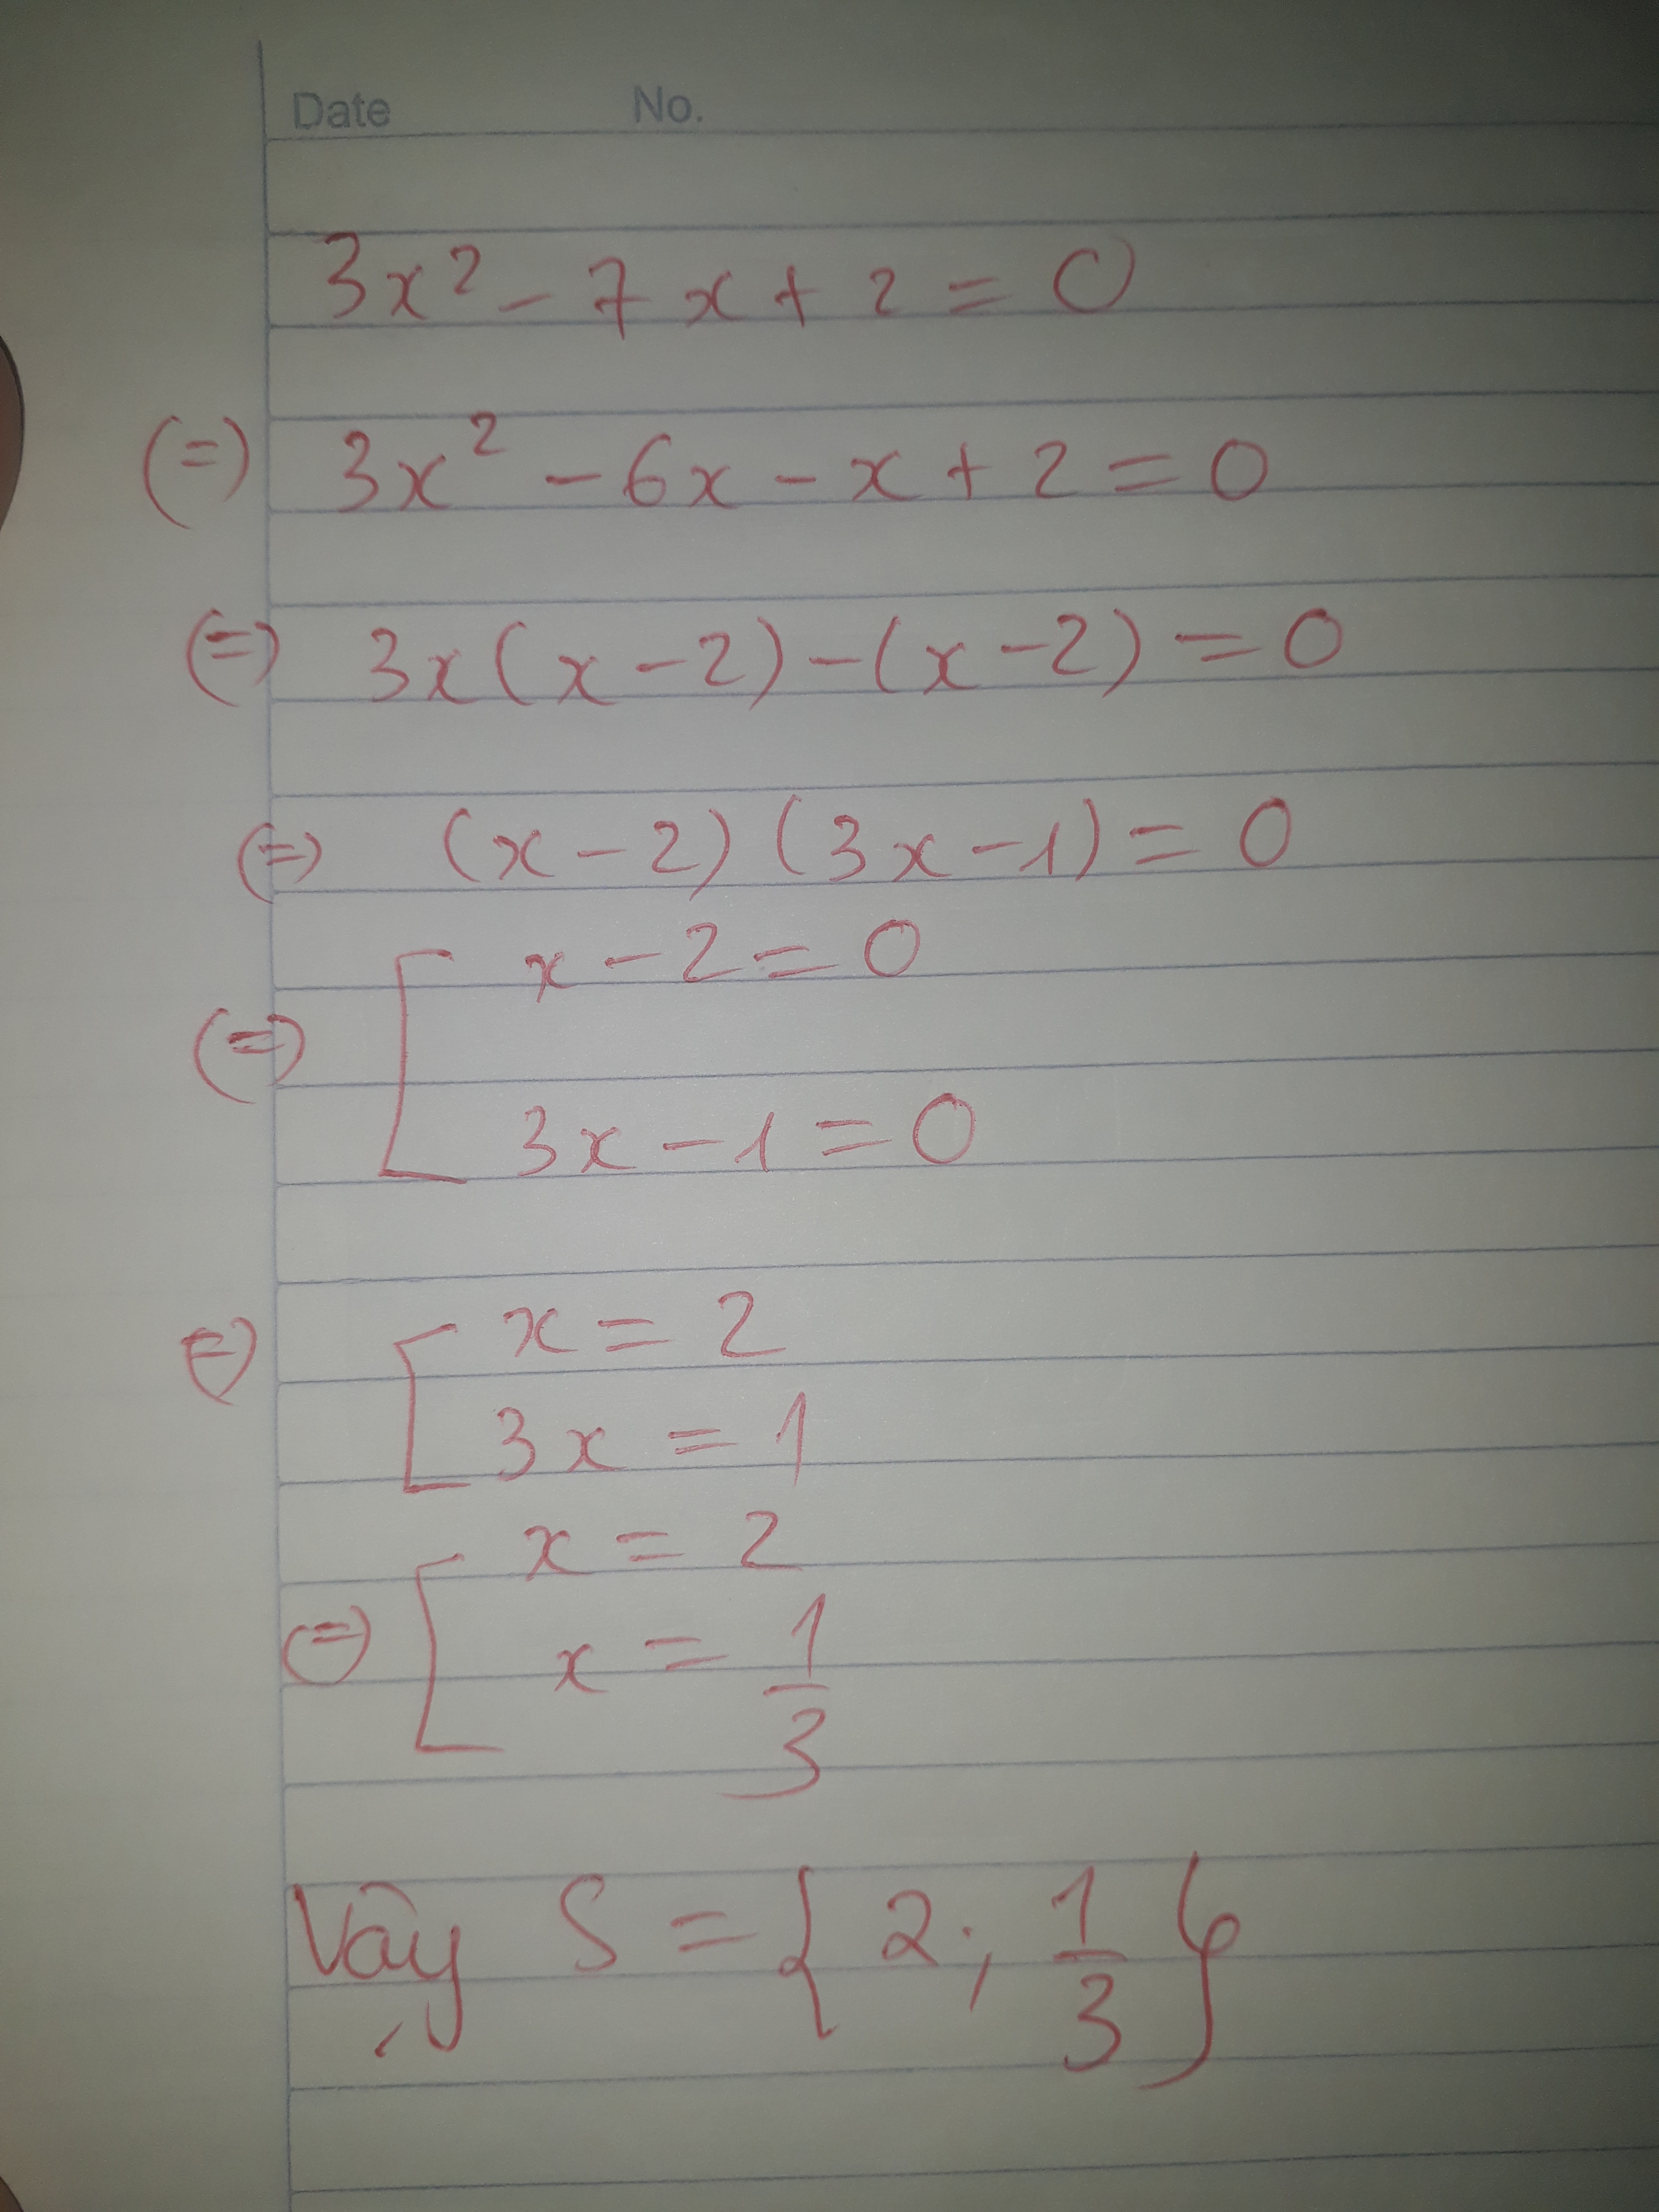 Date No.
3x² - 7x + 2 = 0
(=) 3x² - 6x - x + 2 = 0
(=) 3x(x - 2) - (x - 2) = 0
(=) (x - 2) (3x - 1) = 0
x - 2 = 0
(=)
3x - 1 = 0
x = 2
(=)
3x = 1
x = 2
(=) x = 1/3
Vậy S = { 2 ; 1/3 }